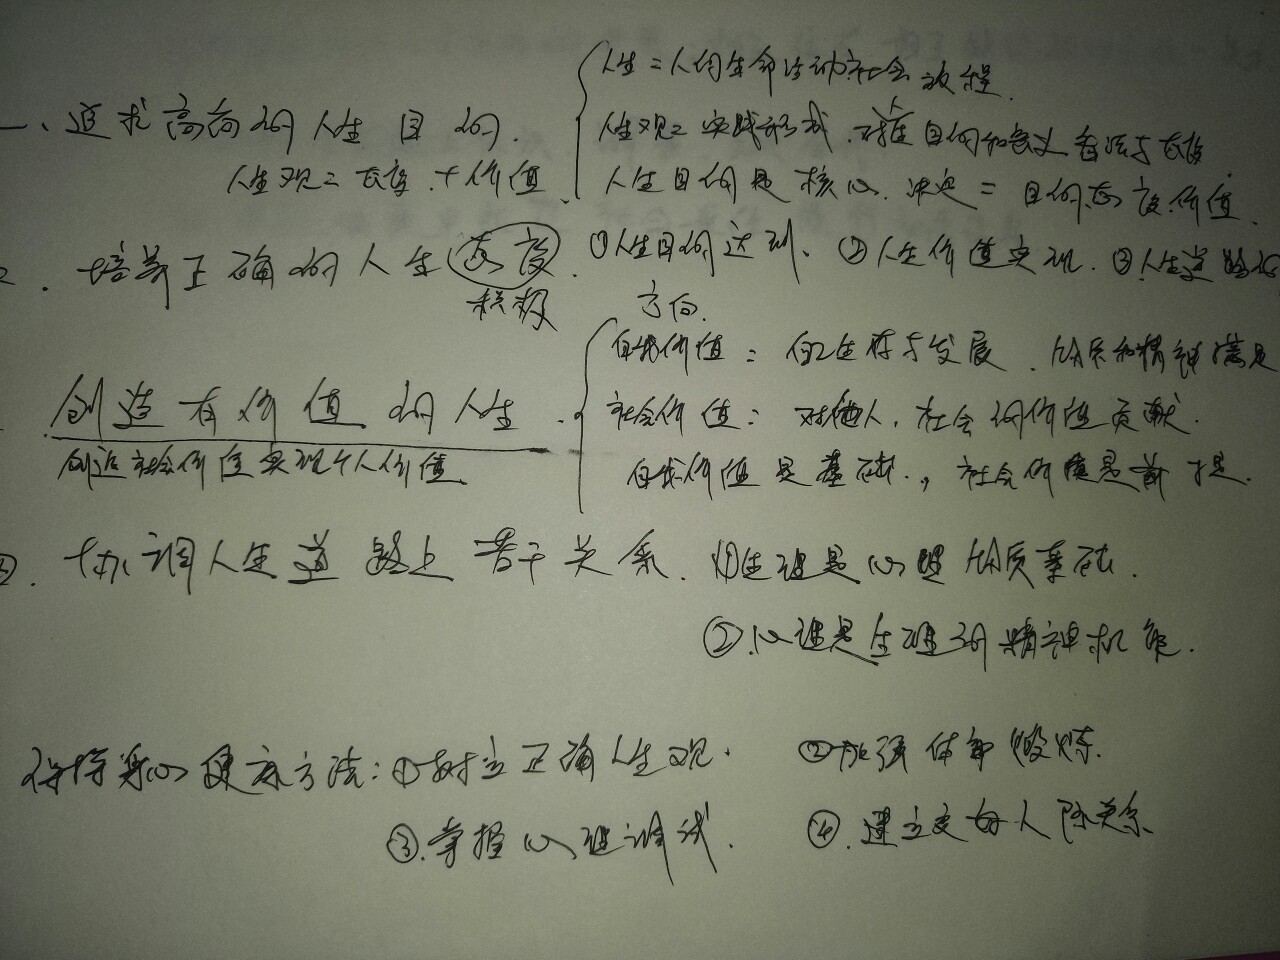 一、追求高尚的人生目的.
人生观=态度.+价值
人生=人的生命活动社会 过程.
人生观=实践形式.对 目的和意义 看法与态度.
人生目的是核心.决定= 目的.态度.价值.
培养正确的人生态度.①人生目的达到、②人生价值实现.③人生
积极 方向.
创造有价值的人生.
创造社会价值实现个人价值.
自我价值:自己生存与发展.物质和精神满足
社会价值:对他人,社会的价值贡献.
自我价值是基础.,社会价值是前提.
四.协调人生道路上若干关系.①生理是心理物质基础.
②心理是生理的精神机能.
保持身心健康方法:①树立正确人生观. ②加强体育锻炼.
③.掌握心理调试. ④.建立友好人际关系